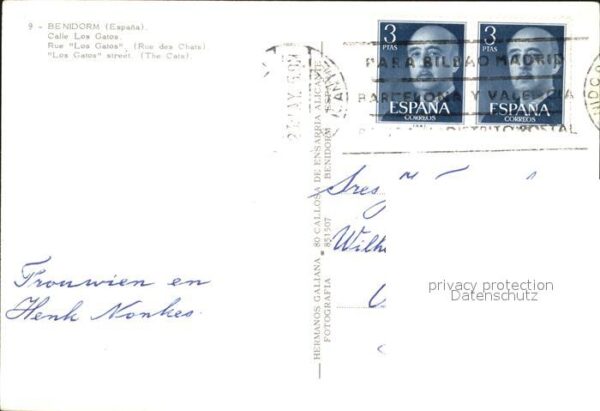 9 - BENIDORM (España).
Calle Los Gatos.
Rue "Los Gatos". (Rue des Chats).
"Los Gatos" street. (The Cats).
3 PTAS
ESPAÑA
CORREOS
3 PTAS
ESPAÑA
CORREOS
PARA BILBAO MADRID
BARCELONA Y VALENCIA
DISTRITO POSTAL
HERMANOS GALIANA ● 80 CALLOSA DE ENSARRIA ALICANTE
FOTOGRAFIA 851507 BENIDORM
Sres
Wilh
privacy protection
Datenschutz
Trouwien en
Henk Nonkes